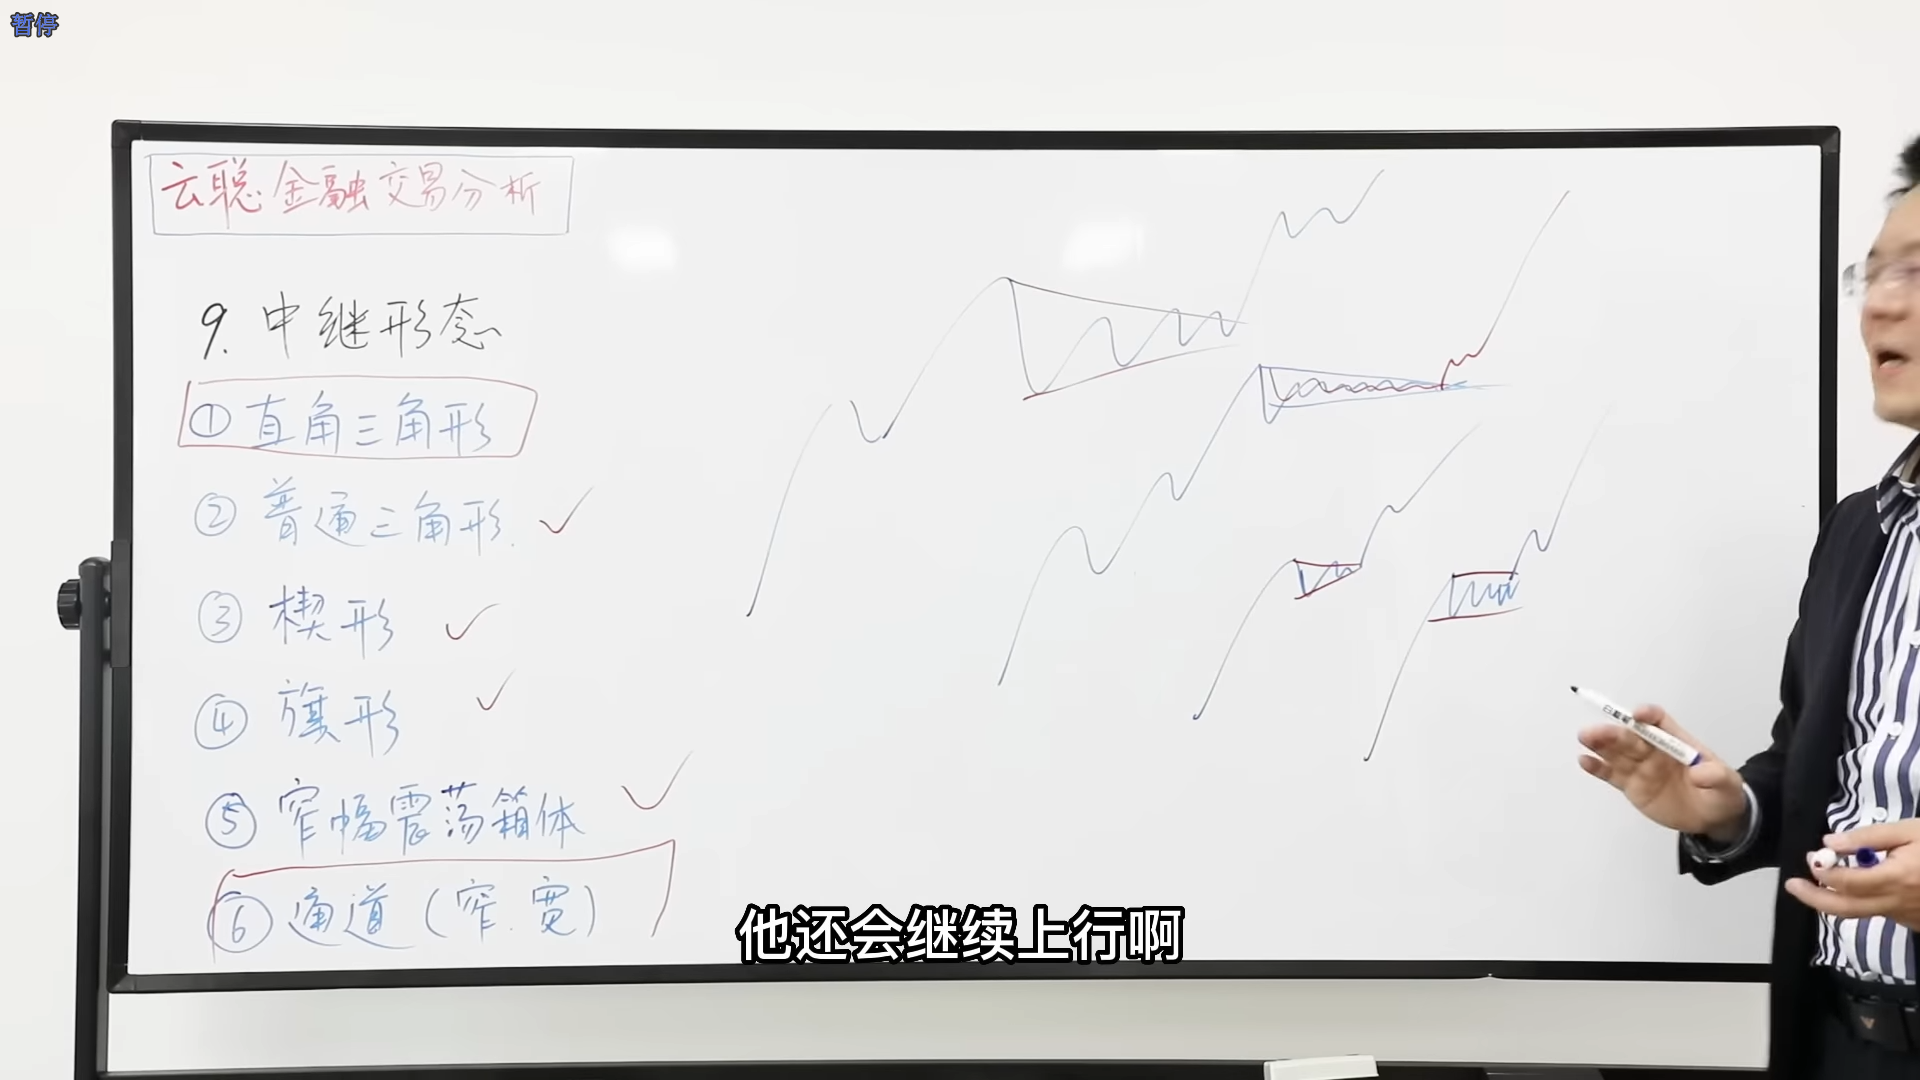 暂停
云聪金融交易分析
9. 中继形态
① 直角三角形
② 普通三角形
③ 楔形
④ 旗形
⑤ 窄幅震荡箱体
⑥ 通道（窄.宽）
他还会继续上行啊